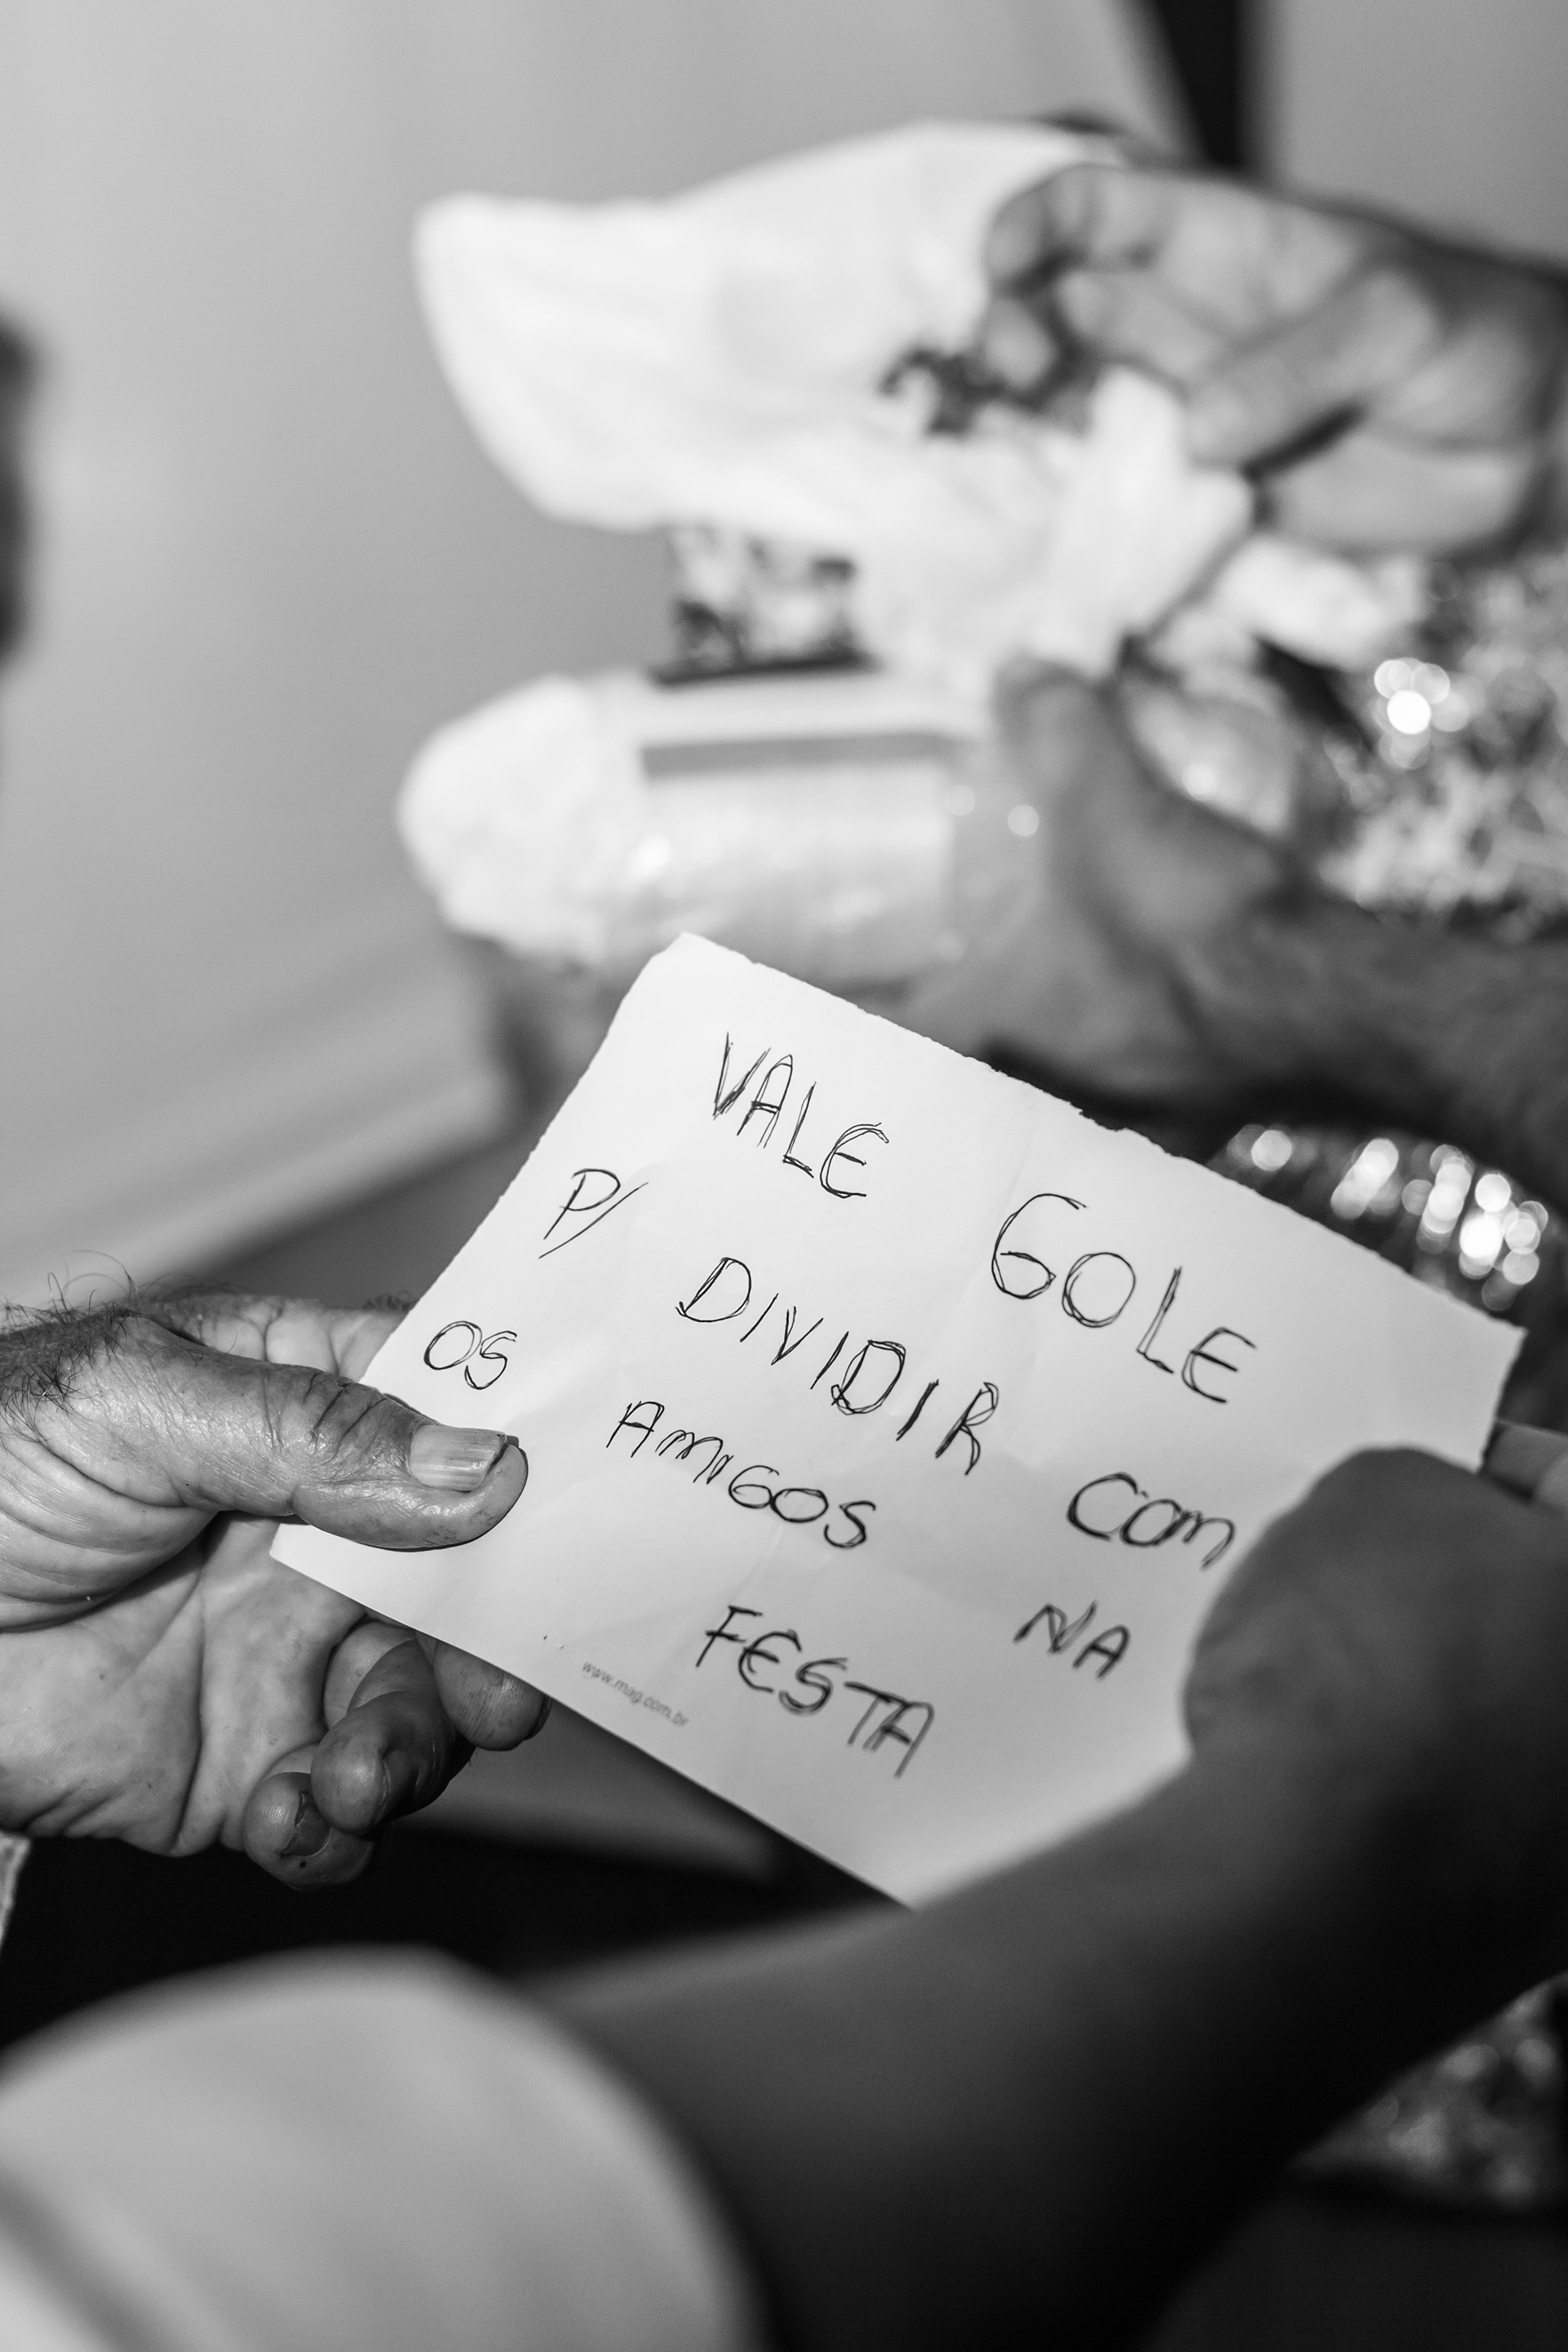 VALE GOLE
P/ DIVIDIR COM
OS AMIGOS NA
FESTA
www.mag.com.br